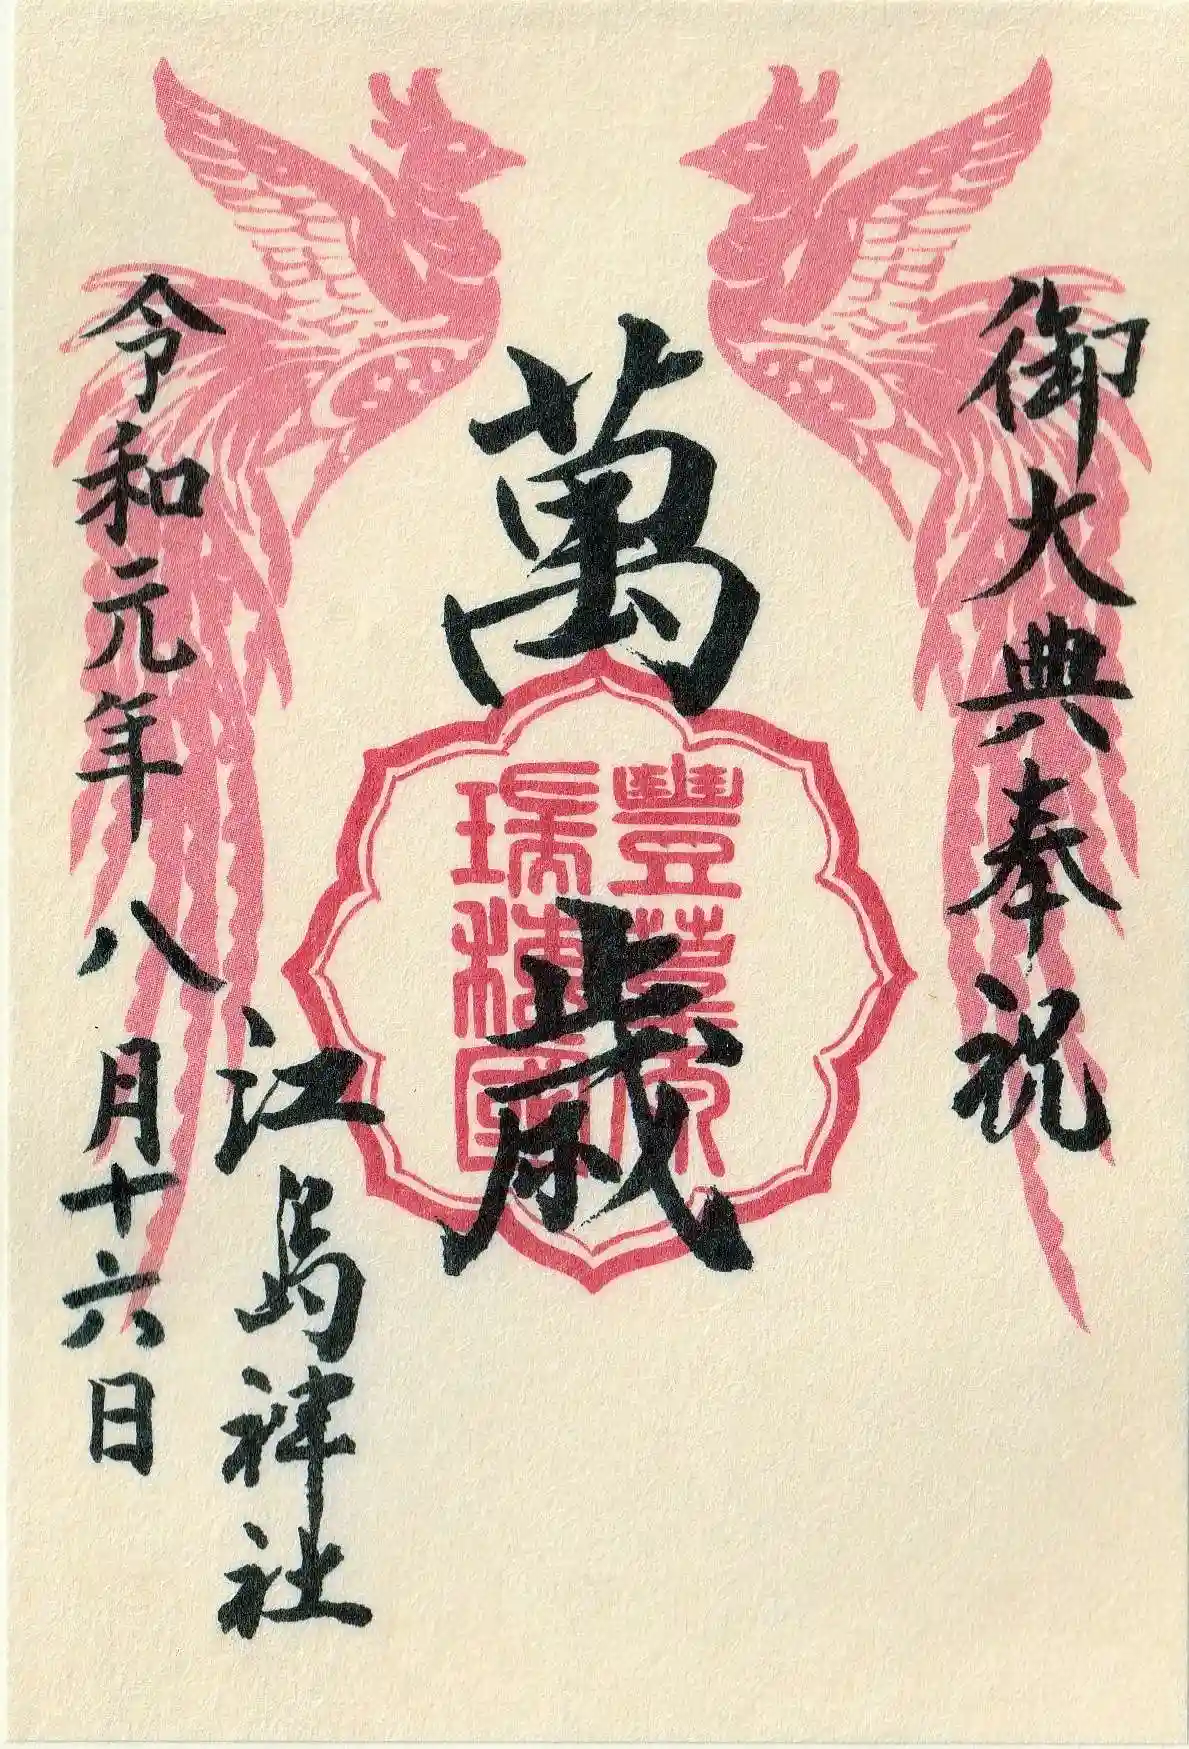 御大典奉祝
萬歳
豐葦原
瑞穗國
江島神社
令和元年八月十六日